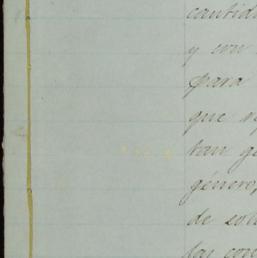 cantid
y con
para
que
tan g
género,
de sol
las con